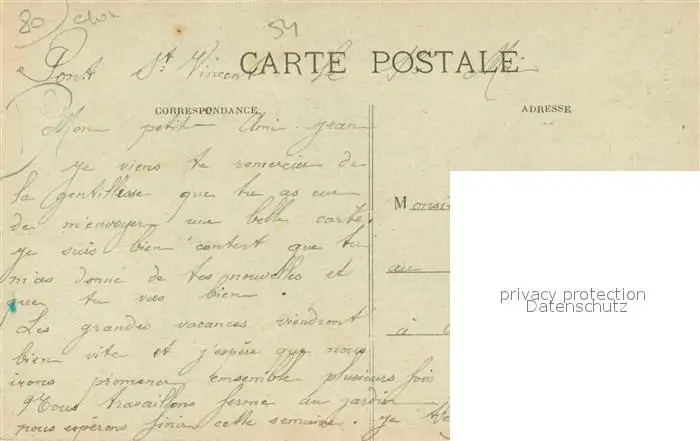 80
54
Pont St Vincent le
CARTE POSTALE
CORRESPONDANCE
ADRESSE
Mon petit Ami jean
je viens te remercier de
la gentillesse que tu as eue
de m'envoyer une belle carte.
je suis bien content que tu
m'as donné de tes nouvelles et
que tu vas bien.
Les grandes vacances viendront
bien vite et j'espère que nous
irons promener ensemble plusieurs fois
Nous travaillons ferme au jardin
nous espérons finir cette semaine. je
Monsi
au
à
privacy protection
Datenschutz